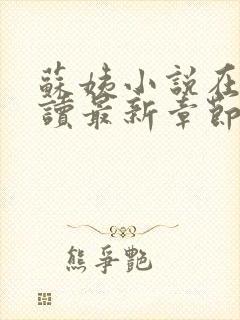 蘇姨小說在
讀最新章節
熊爭艷